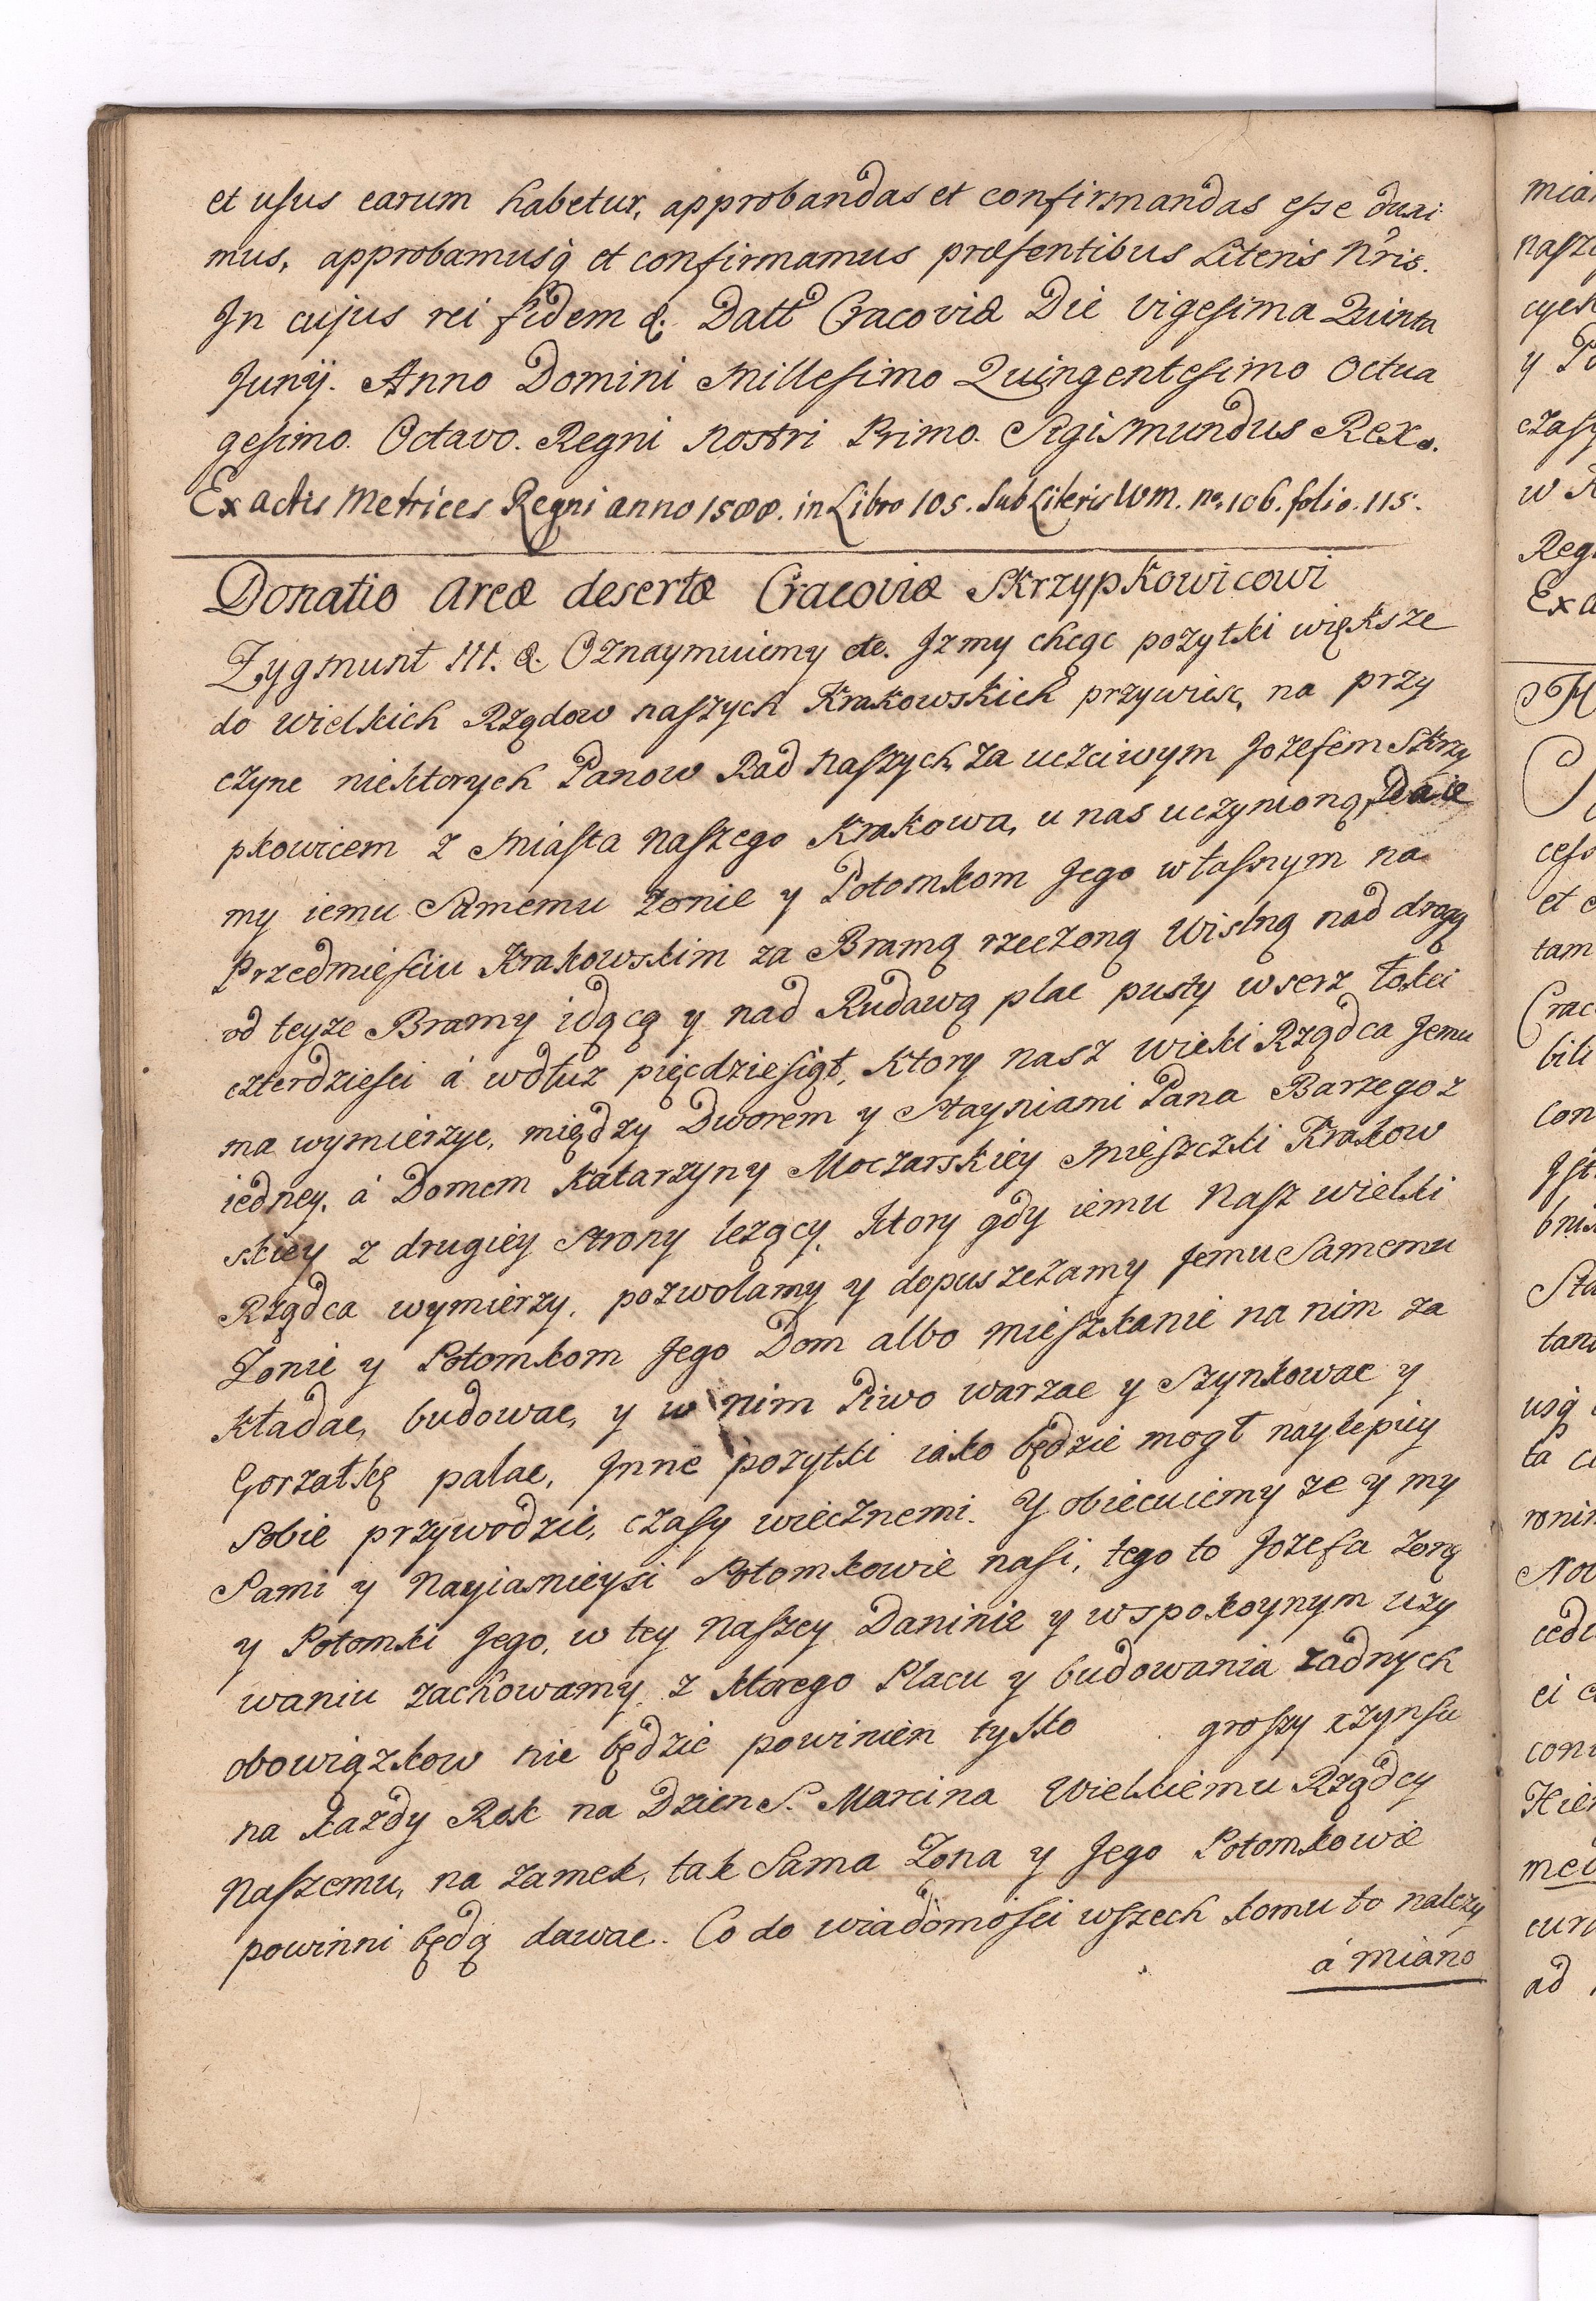 et usus earum habetur, approbandas et confirmandas esse duxi
mus, approbamusq̀ et confirmamus præsentibus Literis Nris.
In cujus rei fidem &. Datt Cracoviæ Die vigesima Quinta
Junÿ. Anno Domini Millesimo Quingentesimo Octua
gesimo. Octavo. Regni Nostri Primo. Sigismundus Rex.
Ex actis Metrices Regni anno 1588. in Libro 105. sub Literis WM. no. 106. folio. 115.
Donatio areæ desertæ Cracoviæ Skrzypkowicowi
Zygmunt III. &. Oznaymuiemy etc. Iz my chcąc pozytki większe
do wielkich Rządow naszych Krakowskich przywiśc, na przy
czyne niektorych Panow Rad Naszych, za uczciwym Jozefem Skrzy
pkowicem z Miasta Naszego Krakowa, u nas uczynioną, Daie
my iemu Samemu zonie y Potomkom Jego własnym na
Przedmiesciu Krakowskim za Bramą rzeczoną Wislną nad drogą
od teyze Bramy idącą y nad Rudawą plac pusty wserz łokci
czterdziesci á wdłuz pięcdziesiąt, Ktory nasz wielki Rządca Jemu
ma wymierzyc, między Dworem y Stayniami Pana Barzego z
iedney, á Domem Katarzyny Moczarskiey Mieszczki Krakow
skiey z drugiey strony lezący, Ktory gdy iemu Nasz wielki
Rządca wymierzy, pozwolamy y dopuszczamy Jemu Samemu
Zonie y Potomkom Jego Dom albo mieszkanie na nim za
kładac, budowac, y w nim Piwo warzac y szynkowac y
Gorzałkę palac, Inne pozytki iako będzie mogł naylepiey
Sobie przywodzic, czasy wiecznemi. Y obiecuiemy ze y my
Sami y Nayiasnieysi Potomkowie nasi, tego to Jozefa zonę
y Potomki Jego, w tey Naszey Daninie y wspokoynym uzy
waniu zachowamy, z ktorego Placu y budowania zadnych
obowiązkow nie będzie powinien tylko groszy czynsu
na kazdy Rok na Dzien S. Marcina Wielkiemu Rządcy
Naszemu, na zamek, tak Sama Zona y Jego Potomkowie
powinni będą dawac. Co do wiadomosci wszech komu to nalezy
á miano